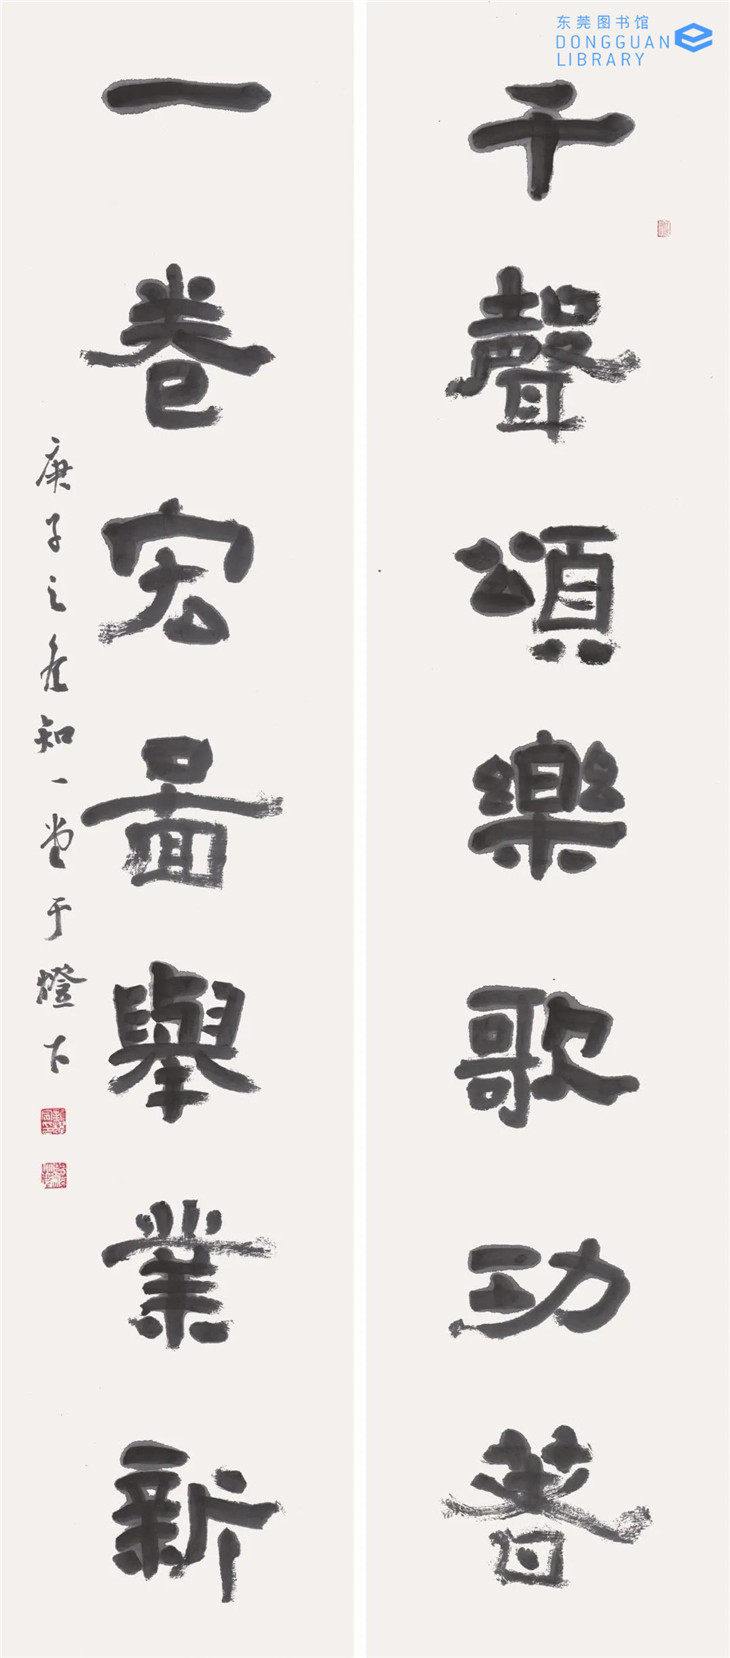 东莞图书馆
DONGGUAN
LIBRARY
千聲頌樂歌功著
一卷宏圖舉業新
庚子之秋知一堂于燈下